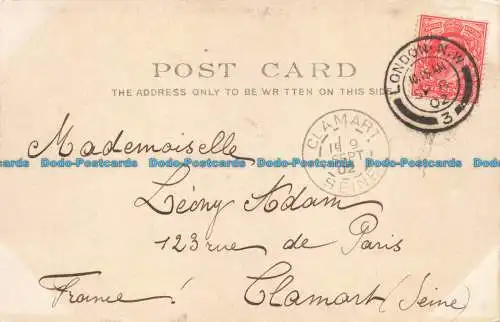 POST CARD
THE ADDRESS ONLY TO BE WRITTEN ON THIS SIDE
LONDON. N.W.
02
3
CLAMART
9
SEPT
02
SEINE
Mademoiselle
Léony Adam
123 rue de Paris
Clamart (Seine)
France!
Dodo-Postcards Dodo-Postcards Dodo-Postcards Dodo-Postcards Dodo-Postcards